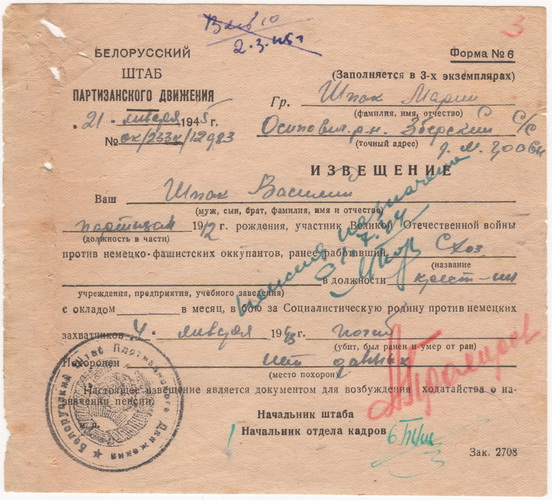 3
2.3.45г
БЕЛОРУССКИЙ
ШТАБ
ПАРТИЗАНСКОГО ДВИЖЕНИЯ
Форма № 6
(Заполняется в 3-х экземплярах)
Гр. Шпак Марии
(фамилия, имя, отчество)
21 января 1945г.
№
Осипович. р-н. С/С
(точный адрес)
ИЗВЕЩЕНИЕ
Ваш Шпак Василий
(муж, сын, брат, фамилия, имя и отчество)
партизан 1912 г. рождения, участник Великой Отечественной войны
(должность в части)
против немецко-фашистских оккупантов, ранее работавший С/хоз
(название
в должности
учреждения, предприятия, учебного заведения)
с окладом в месяц, в бою за Социалистическую родину против немецких
захватчиков 4 января 1943 г. погиб
(убит, был ранен и умер от ран)
Похоронен нет данных
(место похорон)
Настоящее извещение является документом для возбуждения ходатайства о на-
значении пенсии.
пенсия назначена
Начальник штаба
Начальник отдела кадров
Белорусский Штаб Партизанского Движения
м. п.
Зак. 2708